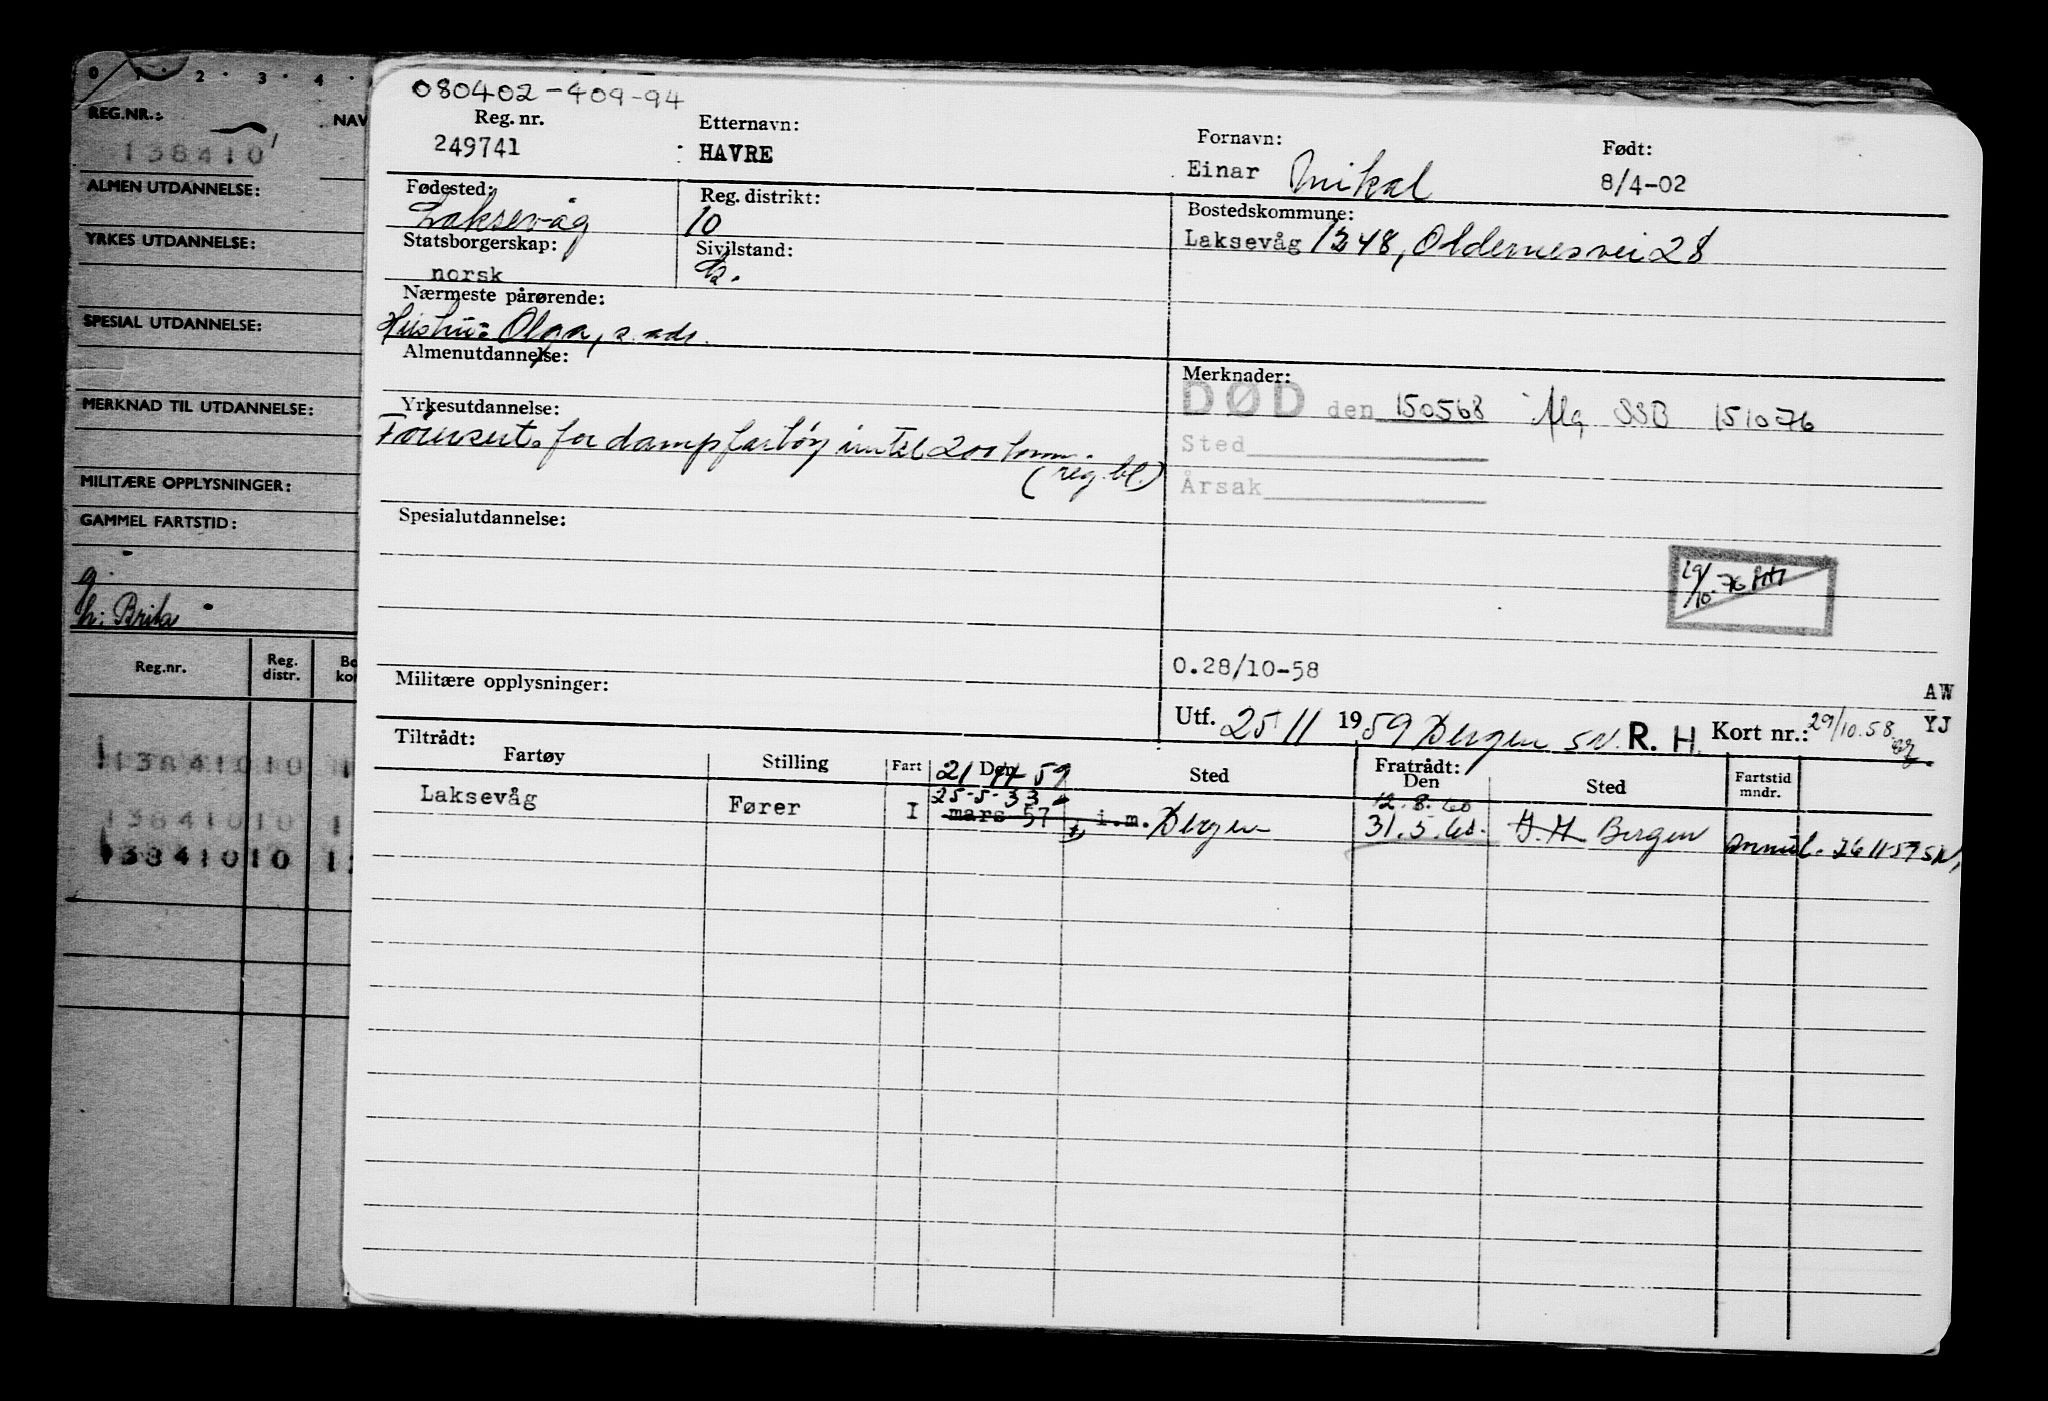 0 · 1 · 2 · 3 · 4 ·
REG.NR.:
NAV
138410
ALMEN UTDANNELSE:
YRKES UTDANNELSE:
SPESIAL UTDANNELSE:
MERKNAD TIL UTDANNELSE:
MILITÆRE OPPLYSNINGER:
GAMMEL FARTSTID:
g.
h: Brita
Reg.nr. Reg. distr. Bo kor
13841010 1
13841010 1
13841010 1
080402-409-94
Reg. nr. Etternavn: Fornavn: Født:
249741 HAVRE Einar Mikal 8/4-02
Fødested: Reg. distrikt: Bostedskommune:
Laksevåg 10 Laksevåg 1248, Oldernesvei 28
Statsborgerskap: Sivilstand:
norsk G.
Nærmeste pårørende:
Hustru: Olga, s. adr.
Almenutdannelse:
Merknader:
DØD den 150568 Mg SSB 151076
Sted
Årsak
Yrkesutdannelse:
Førersert. for dampfartøy inntil 200 tonn.
(reg. bl.)
Spesialutdannelse:
29/10-76
O.28/10-58
Militære opplysninger:
AW
Utf. 25/11 1959 Bergen SN. R. H. Kort nr.: 29/10.58. YJ
Tiltrådt: Fratrådt:
Fartøy Stilling Fart Den Sted Den Sted Fartstid mndr.
21 59
25-5-33 12.8.60
Laksevåg Fører I mars 57 i.m. Bergen 31.5.60. Bergen Annul. 26 11 59 SN,